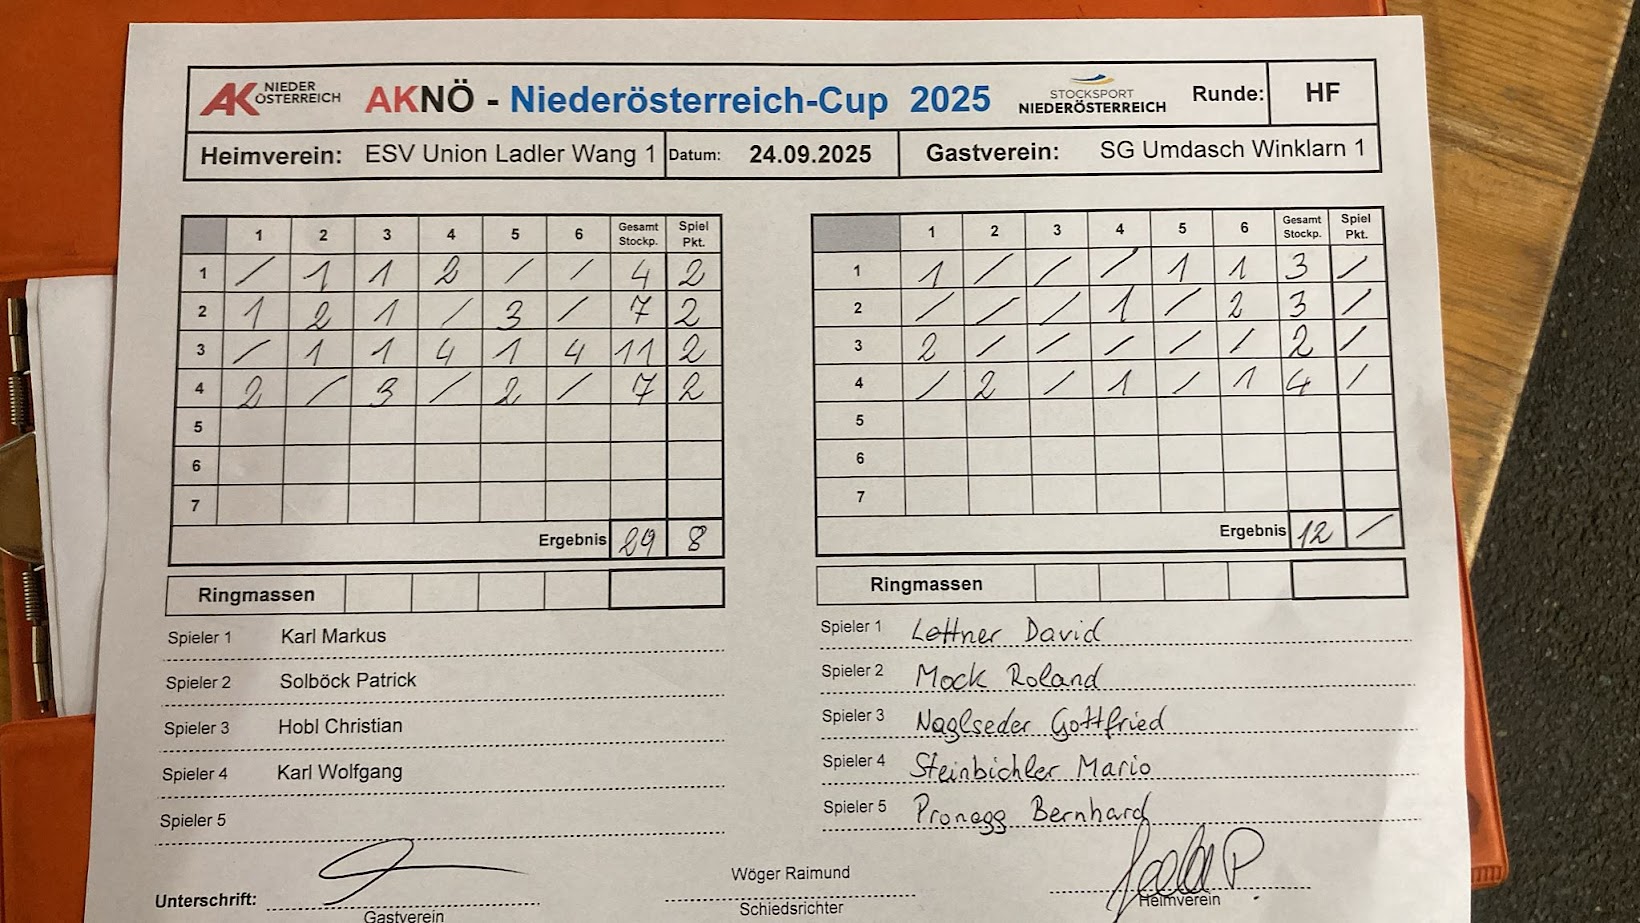 AK NIEDER ÖSTERREICH AKNÖ - Niederösterreich-Cup 2025 STOCKSPORT NIEDERÖSTERREICH Runde: HF
Heimverein: ESV Union Ladler Wang 1 Datum: 24.09.2025 Gastverein: SG Umdasch Winklarn 1
1 2 3 4 5 6 Gesamt Stockp. Spiel Pkt.
1 / 1 1 2 / / 4 2
2 1 2 1 / 3 / 7 2
3 / 1 1 4 1 4 11 2
4 2 / 3 / 2 / 7 2
5
6
7
Ergebnis 29 8
Ringmassen
Spieler 1 Karl Markus
Spieler 2 Solböck Patrick
Spieler 3 Hobl Christian
Spieler 4 Karl Wolfgang
Spieler 5
1 2 3 4 5 6 Gesamt Stockp. Spiel Pkt.
1 1 / / / 1 1 3 /
2 / / / 1 / 2 3 /
3 2 / / / / / 2 /
4 / 2 / 1 / 1 4 /
5
6
7
Ergebnis 12 /
Ringmassen
Spieler 1 Lettner David
Spieler 2 Mock Roland
Spieler 3 Naglseder Gottfried
Spieler 4 Steinbichler Mario
Spieler 5 Pronegg Bernhard
Unterschrift:
Gastverein
Wöger Raimund
Schiedsrichter
Heimverein